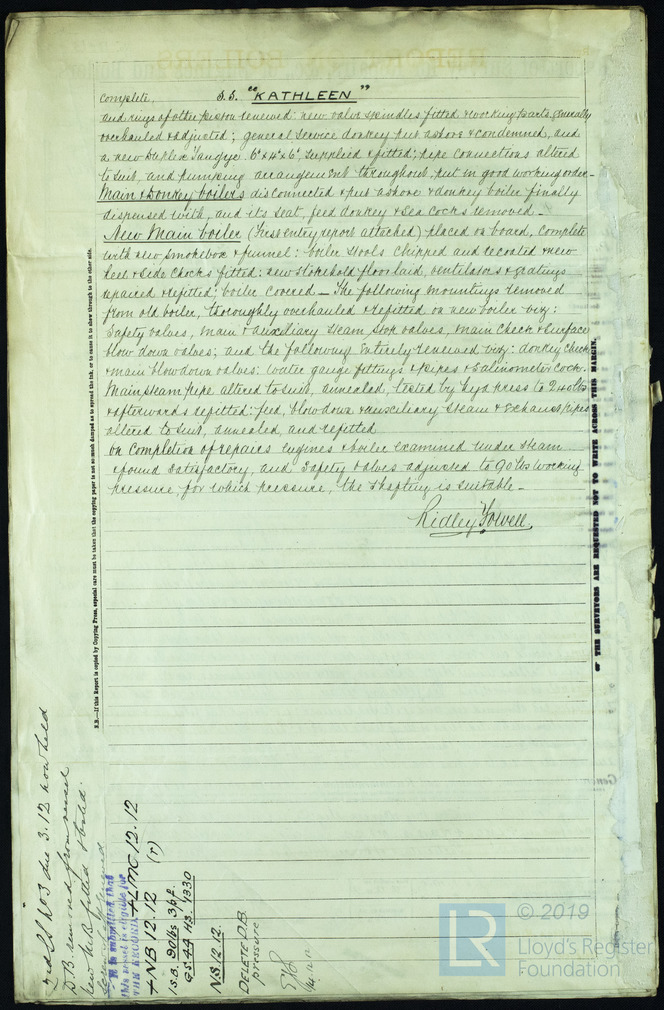 complete, S.S. "KATHLEEN"
and rings of other piston renewed: new valve spindles fitted & working parts generally
overhauled & adjusted; general service donkey put ashore & condemned, and
a new Duplex Tangye 6"x4"x6" supplied & fitted; pipe connections altered
to suit, and pumping arrangement throughout put in good working order.
Main & Donkey boilers disconnected & put ashore & donkey boiler finally
dispensed with, and its seat, feed donkey & sea cocks removed.
New Main boiler (First entry report attached) placed on board, complete
with new smokebox & funnel: boiler stools chipped and recoated & new
feet & side chocks fitted: new stokehold floor laid, ventilators & gratings
repaired & refitted; boiler covered - The following mountings removed
from old boiler, thoroughly overhauled & refitted on new boiler viz:
Safety valves, main & auxiliary steam stop valves, main check & surface
blow down valves; and the following entirely renewed viz: donkey check
& main blow down valves: water gauge fittings & pipes & salinometer cock.
Main steam pipe altered to suit, annealed, tested by hyd press to 240 lbs
& afterwards refitted: feed, blow down & auxiliary steam & exhaust pipes
altered to suit, annealed and refitted
On completion of repairs engines & boiler examined under steam
& found satisfactory, and safety valves adjusted to 90 lbs working
pressure, for which pressure, the shafting is suitable -
Ridley Towell.
N.B.—If this Report is copied by Copying Press, especial care must be taken that the copying paper is not so much damped as to spread the ink, or to cause it to show through to the other side.
OF THE SURVEYORS ARE REQUESTED NOT TO WRITE ACROSS THIS MARGIN.
2nd SS No 3 due 3.12 now held
D.B. removed from vessel
New M.B. fitted
It is submitted that
this vessel is eligible for
THE RECORD. + LMC 12.12
+ NB 12.12 (r)
1 S.B. 90 lbs 3 p.f.
G.S. 44 H.S. 1330
N.S. 12.12
DELETE D.B.
pressure
REPORT ON BOILERS
LR
© 2019
Lloyd's Register
Foundation